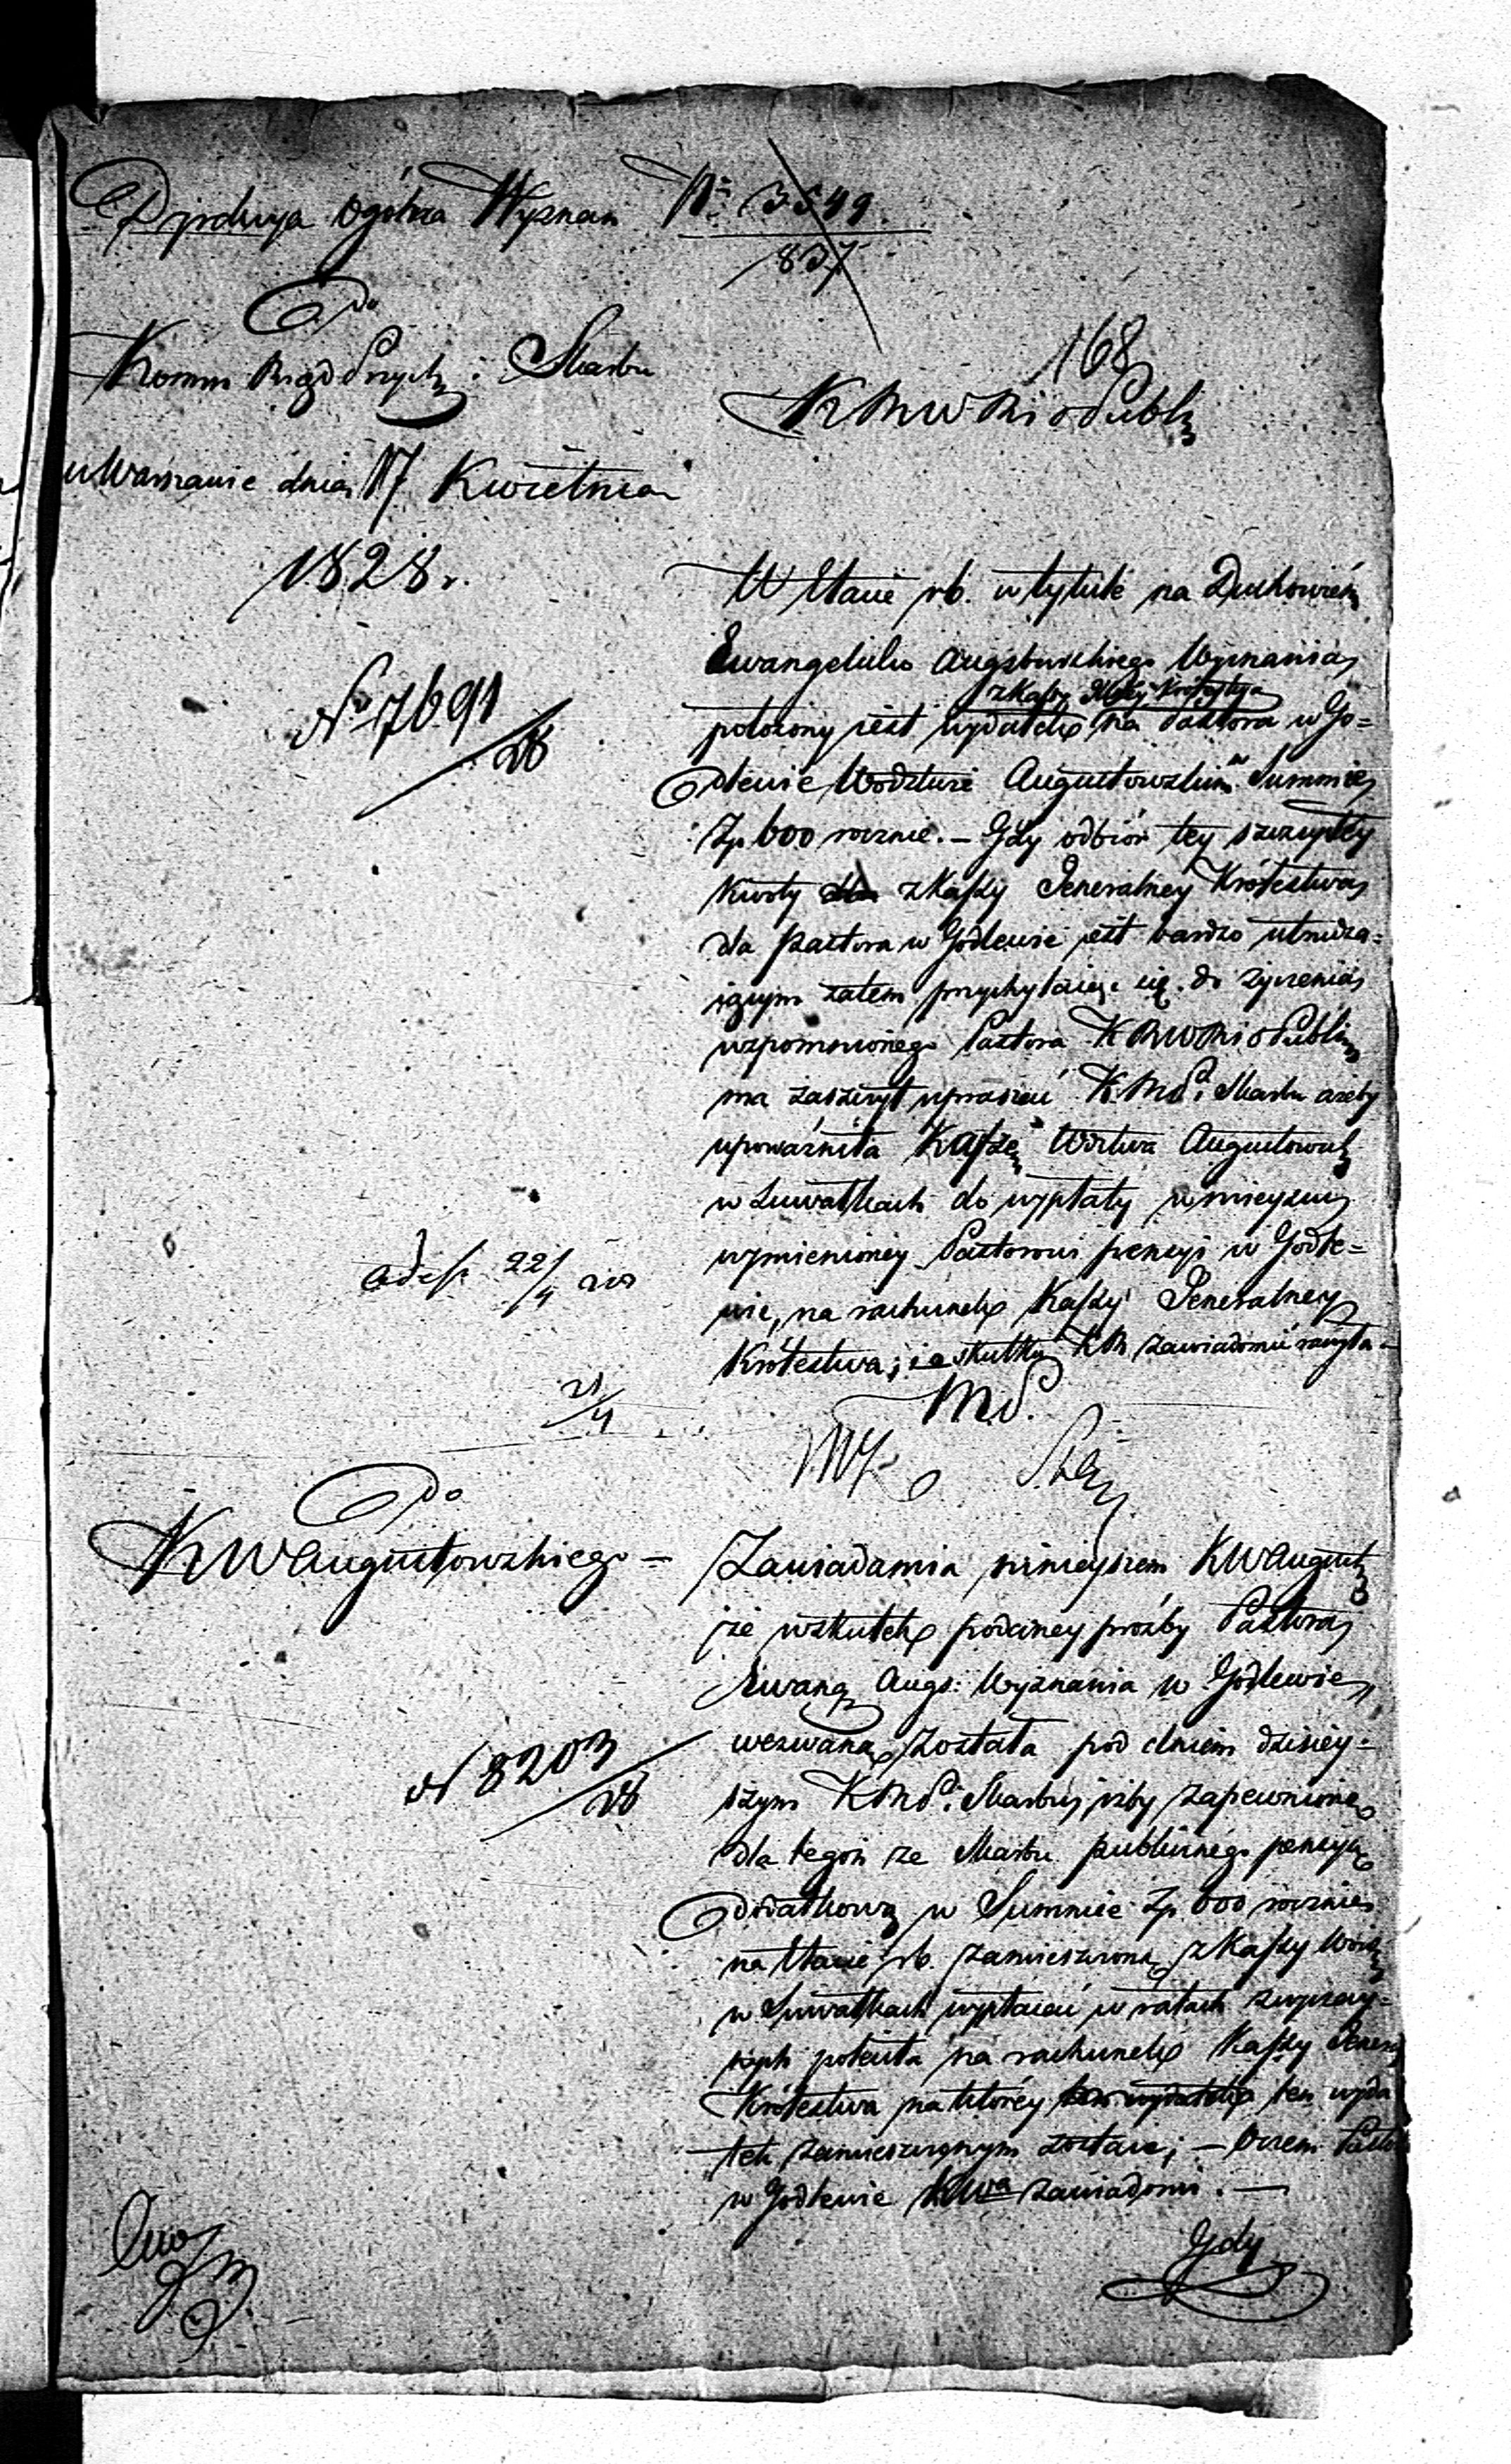 Dyrekcya Ogólna Wyznań Nr 3549
837
168
Do
Komm. Rząd. Przych. i Skarbu
K R W R i O Publ.
w Warszawie dnia 17 Kwietnia
1828.
W Etacie rb. w tytule na Duchowień.
Ewangelicko Augsburskiego Wyznania
z Kassy Głłney Królestwa
położony jest wydatek na Pastora w Go=
dlewie Wodztwie Augustowskim w Summie
Zp. 600 rocznie. – Gdy odbiór tey szczupłey
kwoty dla z Kassy Jeneralney Królestwa
dla Pastora w Godlewie jest bardzo utrudza=
iącym zatem przychylaiąc się do życzenia
wspomnionego Pastora K R W R i O Publ.
ma zaszczyt upraszać K R P i Skarbu ażeby
upoważniła Kassę Wdztwa Augustowsk.
w Suwałkach do wypłaty w mieyscu
wymienioney Pastorowi pensyi w Godle=
wie, na rachunek Kassy Jeneralney
Królestwa; i o skutku KR zawiadomić raczyła.
M P.
N 7691
28
22/4
21/4
Do
K W Augustowskiego =
Zawiadamia ninieyszem K W August.
że wskutek podaney prośby Pastora
Ewang. Augs: Wyznania w Godlewie,
wezwaną została pod dniem dzisiey=
szym K R P i Skarbu, iżby zapewnioną
dla tegoż ze Skarbu publicznego pensyą
dodatkową w Summie Zp. 600 rocznie
na Etacie rb. zamieszczoną z Kassy Woiew.
w Suwałkach wypłacać w ratach zwyczay=
nych poleciła na rachunek Kassy Jeneral.
Królestwa na którey ten wydatek ten wyda
tek zamieszczonym został; – Oczem Pasto
w Godlewie KWa zawiadomi. –
N 8203
28
Gdy